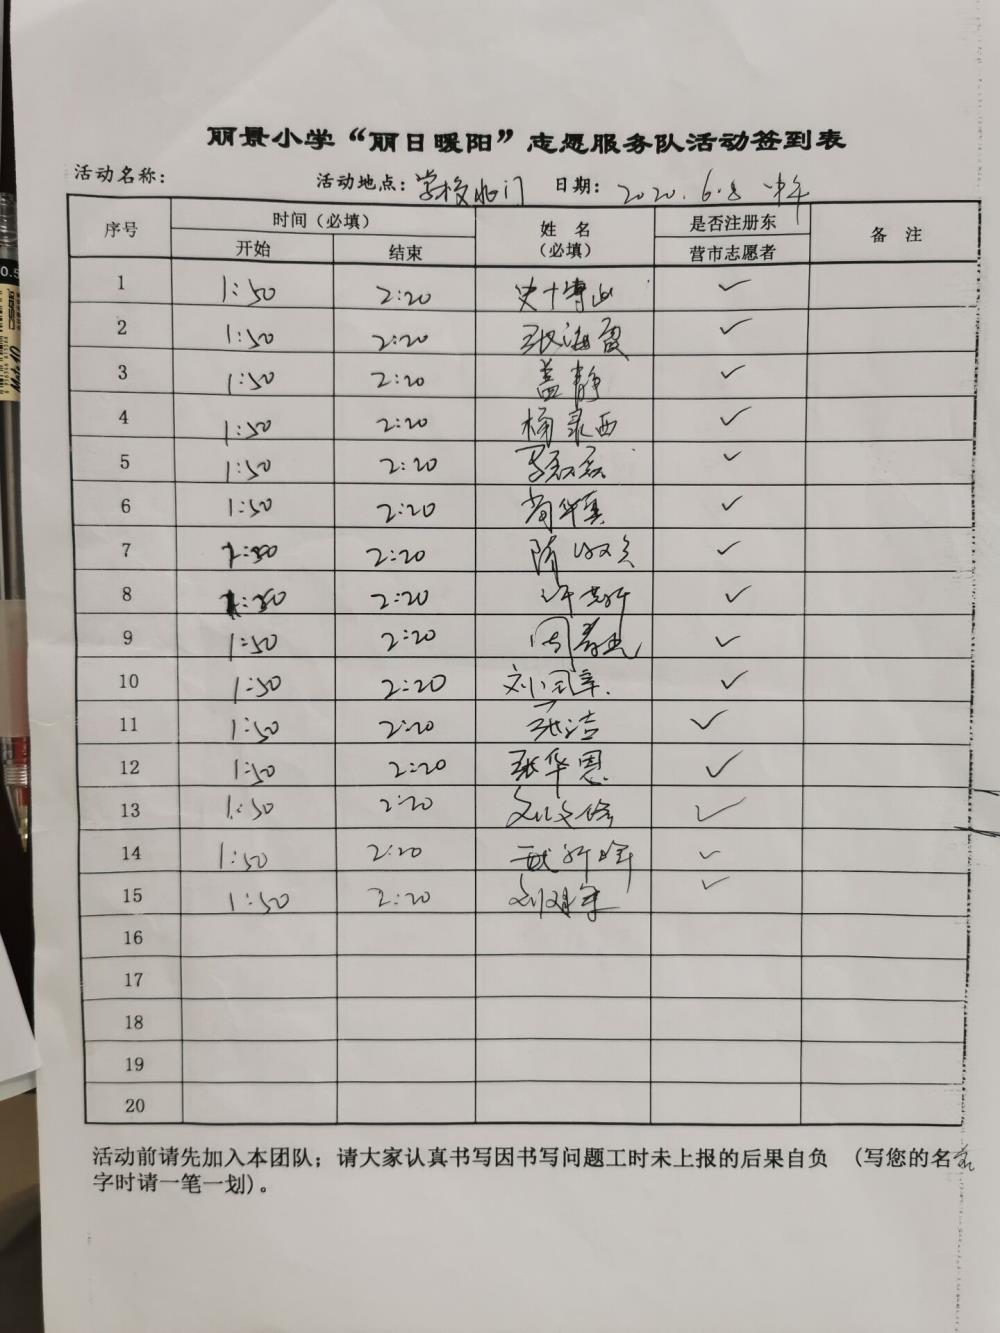 丽景小学“丽日暖阳”志愿服务队活动签到表
活动名称: 活动地点: 学校北门 日期: 2020.6.8 中午
序号 时间（必填） 姓 名（必填） 是否注册东营市志愿者 备 注
开始 结束
1 1:50 2:20
2 1:50 2:20 张海霞 ✓
3 1:50 2:20 盖静 ✓
4 1:50 2:20
5 1:50 2:20
6 1:50 2:20
7 1:50 2:20
8 1:50 2:20
9 1:50 2:20
10 1:50 2:20
11 1:50 2:20 张洁 ✓
12 1:50 2:20 张华恩 ✓
13 1:50 2:20
14 1:50 2:20
15 1:50 2:20
16
17
18
19
20
活动前请先加入本团队；请大家认真书写因书写问题工时未上报的后果自负 （写您的名
字时请一笔一划）。